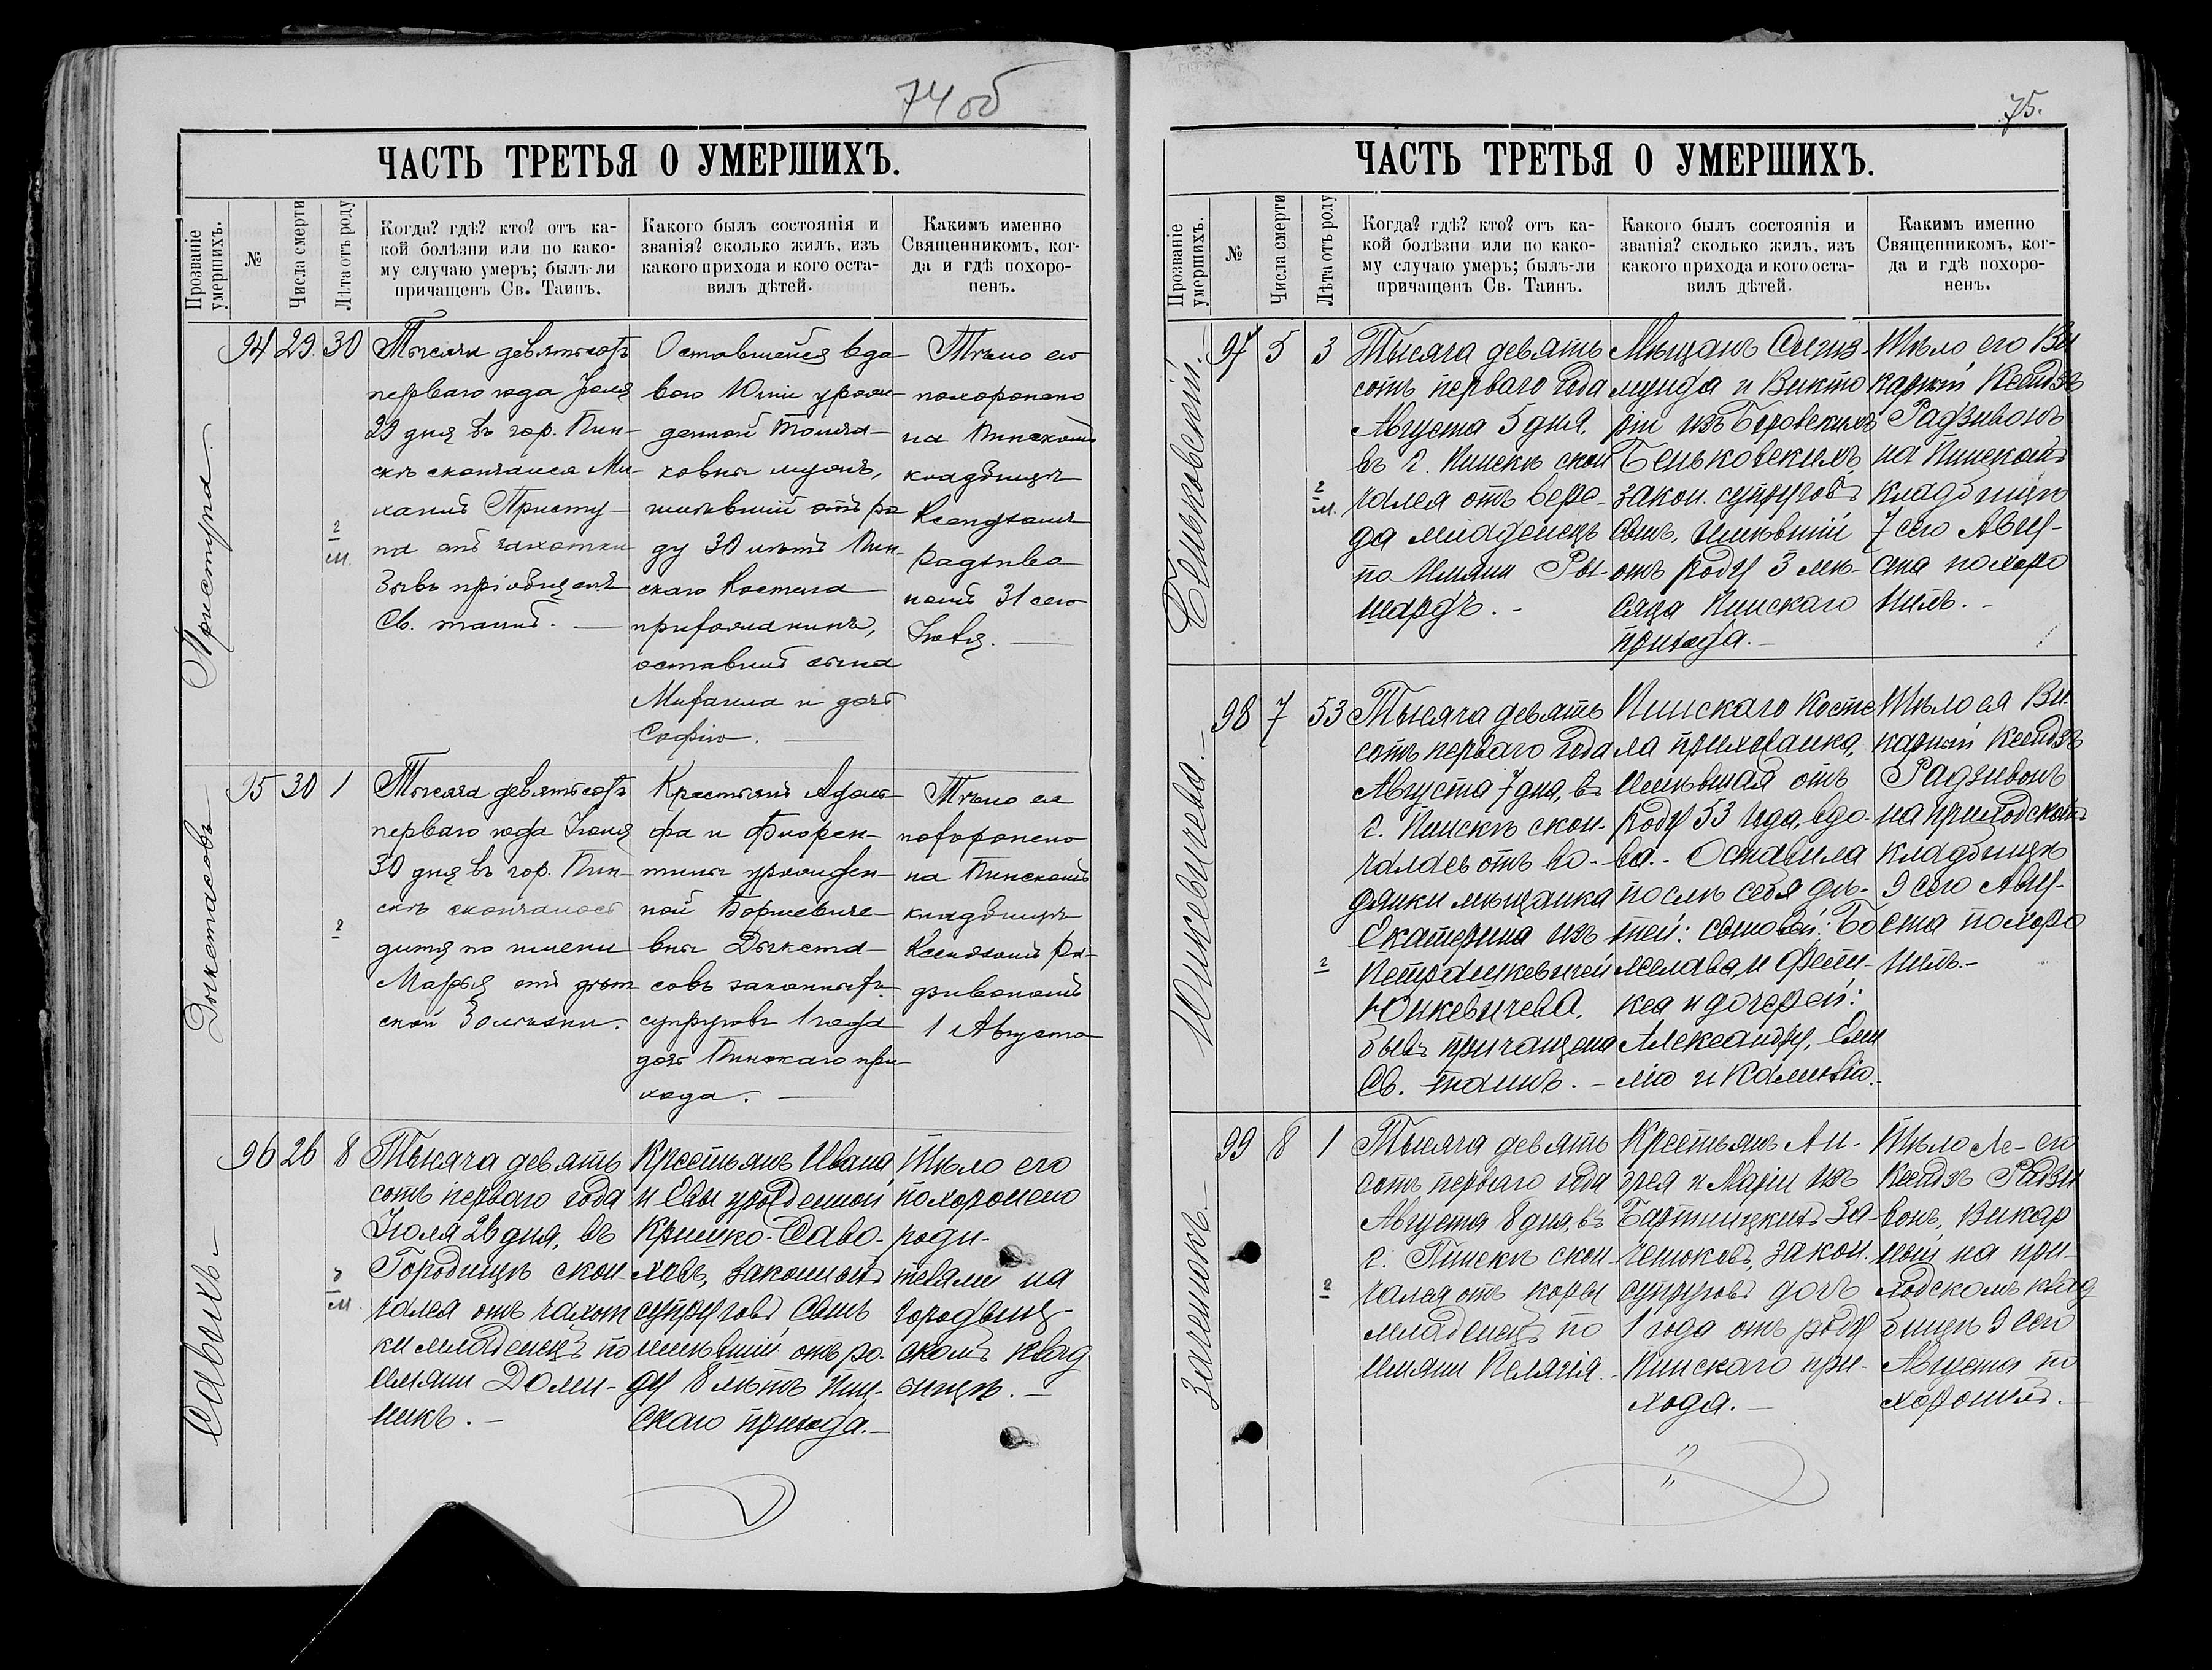 74 об
ЧАСТЬ ТРЕТЬЯ О УМЕРШИХЪ.
Прозваніе умершихъ.
№
Числа смерти
Лѣта отъ роду
Когда? гдѣ? кто? отъ ка-
кой болѣзни или по како-
му случаю умеръ; былъ-ли
причащенъ Св. Таинъ.
Какого былъ состоянія и
званія? сколько жилъ, изъ
какого прихода и кого оста-
вилъ дѣтей.
Какимъ именно
Священникомъ, ког-
да и гдѣ похоро-
ненъ.
Приступа
94 29. 30
г
м.
Тысяча девятьсотъ
перваго года Іюля
29 дня въ гор. Пин-
скѣ скончался Ми-
хаилъ Присту-
па отъ чахотки
бывъ пріобщенъ
Св. таинъ. —
Оставшейся вдо-
вою Юліи урож-
денной
ковны мужъ,
жившій отъ ро
ду 30 лѣтъ Пин-
скаго Костела
прихожанинъ,
оставилъ сына
Михаила и дочь
Софію. —
Тѣло его
похоронено
на Пинскомъ
кладбищѣ
Ксендзомъ
Радзиво-
номъ 31 сего
Іюля. —
Дыкстасовъ
95 30 1
г
Тысяча девятьсотъ
перваго года Іюля
30 дня въ гор. Пин-
скѣ скончалось
дитя по имени
Марья отъ дѣт-
ской болѣзни.
Крестьянъ Адоль-
фа и Флорен-
тины урожден-
ной Боршевиче-
вны Дыкста-
совъ законныхъ
супруговъ 1 года
дочь Пинскаго при-
хода. —
Тѣло ея
похоронено
на Пинскомъ
кладбищѣ
Ксендзомъ Ра-
дзивономъ
1 Августа
Савихъ
96 26 8
г
м
Тысяча девять
сотъ перваго года
Іюля 26 дня, въ
Городищѣ скон-
чался отъ чахот
ки младенецъ по
имяни Доми-
никъ. —
Крестьянъ Ивана
и Евы урожденной
Кришко-Саво-
ховъ, законныхъ
супруговъ, сынъ
жившій отъ ро-
ду 8 лѣтъ Пин-
скаго прихода. —
Тѣло его
похоронено
роди-
телями на
городищ-
скомъ клад
бищѣ. —
75.
ЧАСТЬ ТРЕТЬЯ О УМЕРШИХЪ.
Прозваніе умершихъ.
№
Числа смерти
Лѣта отъ роду
Когда? гдѣ? кто? отъ ка-
кой болѣзни или по како-
му случаю умеръ; былъ-ли
причащенъ Св. Таинъ.
Какого былъ состоянія и
званія? сколько жилъ, изъ
какого прихода и кого оста-
вилъ дѣтей.
Какимъ именно
Священникомъ, ког-
да и гдѣ похоро-
ненъ.
Беньковскій. —
97 5 3
г
м.
Тысяча девять
сотъ перваго года
Августа 5 дня,
въ г. Пинскѣ скон
чался отъ вере-
да младенецъ
по имяни Ры-
шардъ. —
Мѣщанъ Сигиз-
мунда и Викто
ріи изъ Боровскихъ
Беньковскихъ,
закон. супруговъ
сынъ, жившій
отъ роду 3 мѣ-
сяца Пинскаго
прихода. —
Тѣло его Ви
карный Ксендзъ
Радзивонъ
на Пинскомъ
кладбищѣ
7 сего Авгу-
ста похоро
нилъ. —
Юнкевичева. —
98 7 53
г
Тысяча девять
сотъ перваго года
Августа 7 дня, въ
г. Пинскѣ скон-
чалась отъ во-
дянки мѣщанка
Екатерина изъ
Петрашкевичей
Юнкевичева,
бывъ причащена
Св. таинъ. —
Пинскаго Косте
ла прихожанка,
жившая отъ
роду 53 года, вдо-
ва. - Оставила
послѣ себя дѣ-
тей: сыновей: Бо
леслава, и Фели-
кса и дочерей:
Александру, Еми
лію и Камилію.
Тѣло ея Ви-
карный Ксендзъ
Радзивонъ
на приходскомъ
кладбищѣ
9 сего Авгу-
ста похоро
нилъ. —
Заченюкъ —
99 8 1
г
Тысяча девять
сотъ перваго года
Августа 8 дня, въ
г. Пинскѣ скон
чался отъ коры
младенецъ по
имяни Пелагія. -
Крестьянъ Ан-
дрея и Маріи изъ
За-
ченюковъ, закон.
супруговъ дочь
1 года отъ роду
Пинскаго при-
хода. —
Тѣло его
Ксендзъ Радзи
вонъ, Викар
ный на при-
ходскомъ клад
бищѣ 9 сего
Августа по
хоронилъ. —